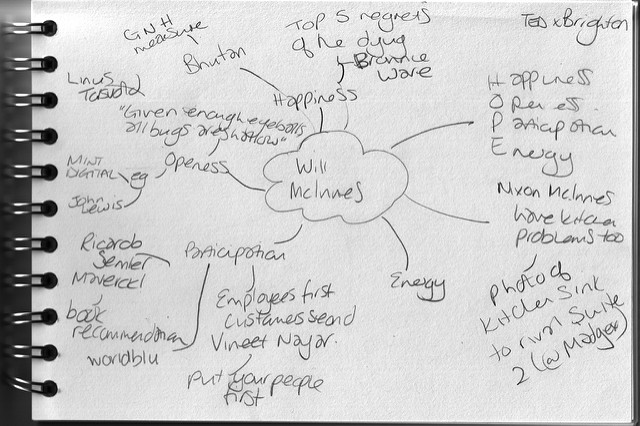 TEDxBrighton
GNH
measure
Bhutan
Top 5 regrets
of the dying
Bronnie
Ware
Happiness
Linus
Torvald
"Given enough eyeballs
all bugs are shallow"
Openess
eg
MINT
DIGITAL
John
Lewis
Will
McInnes
Happiness
Openess
Participation
Energy
Nixon McInnes
have kitchen
problems too
photo of
kitchen sink
to rival Suite
2 (@Madger)
Energy
Participation
Ricardo
Semler
Maverick
book
recommendation
worldblu
Employees first
Customers second
Vineet Nayar.
Put your people
first